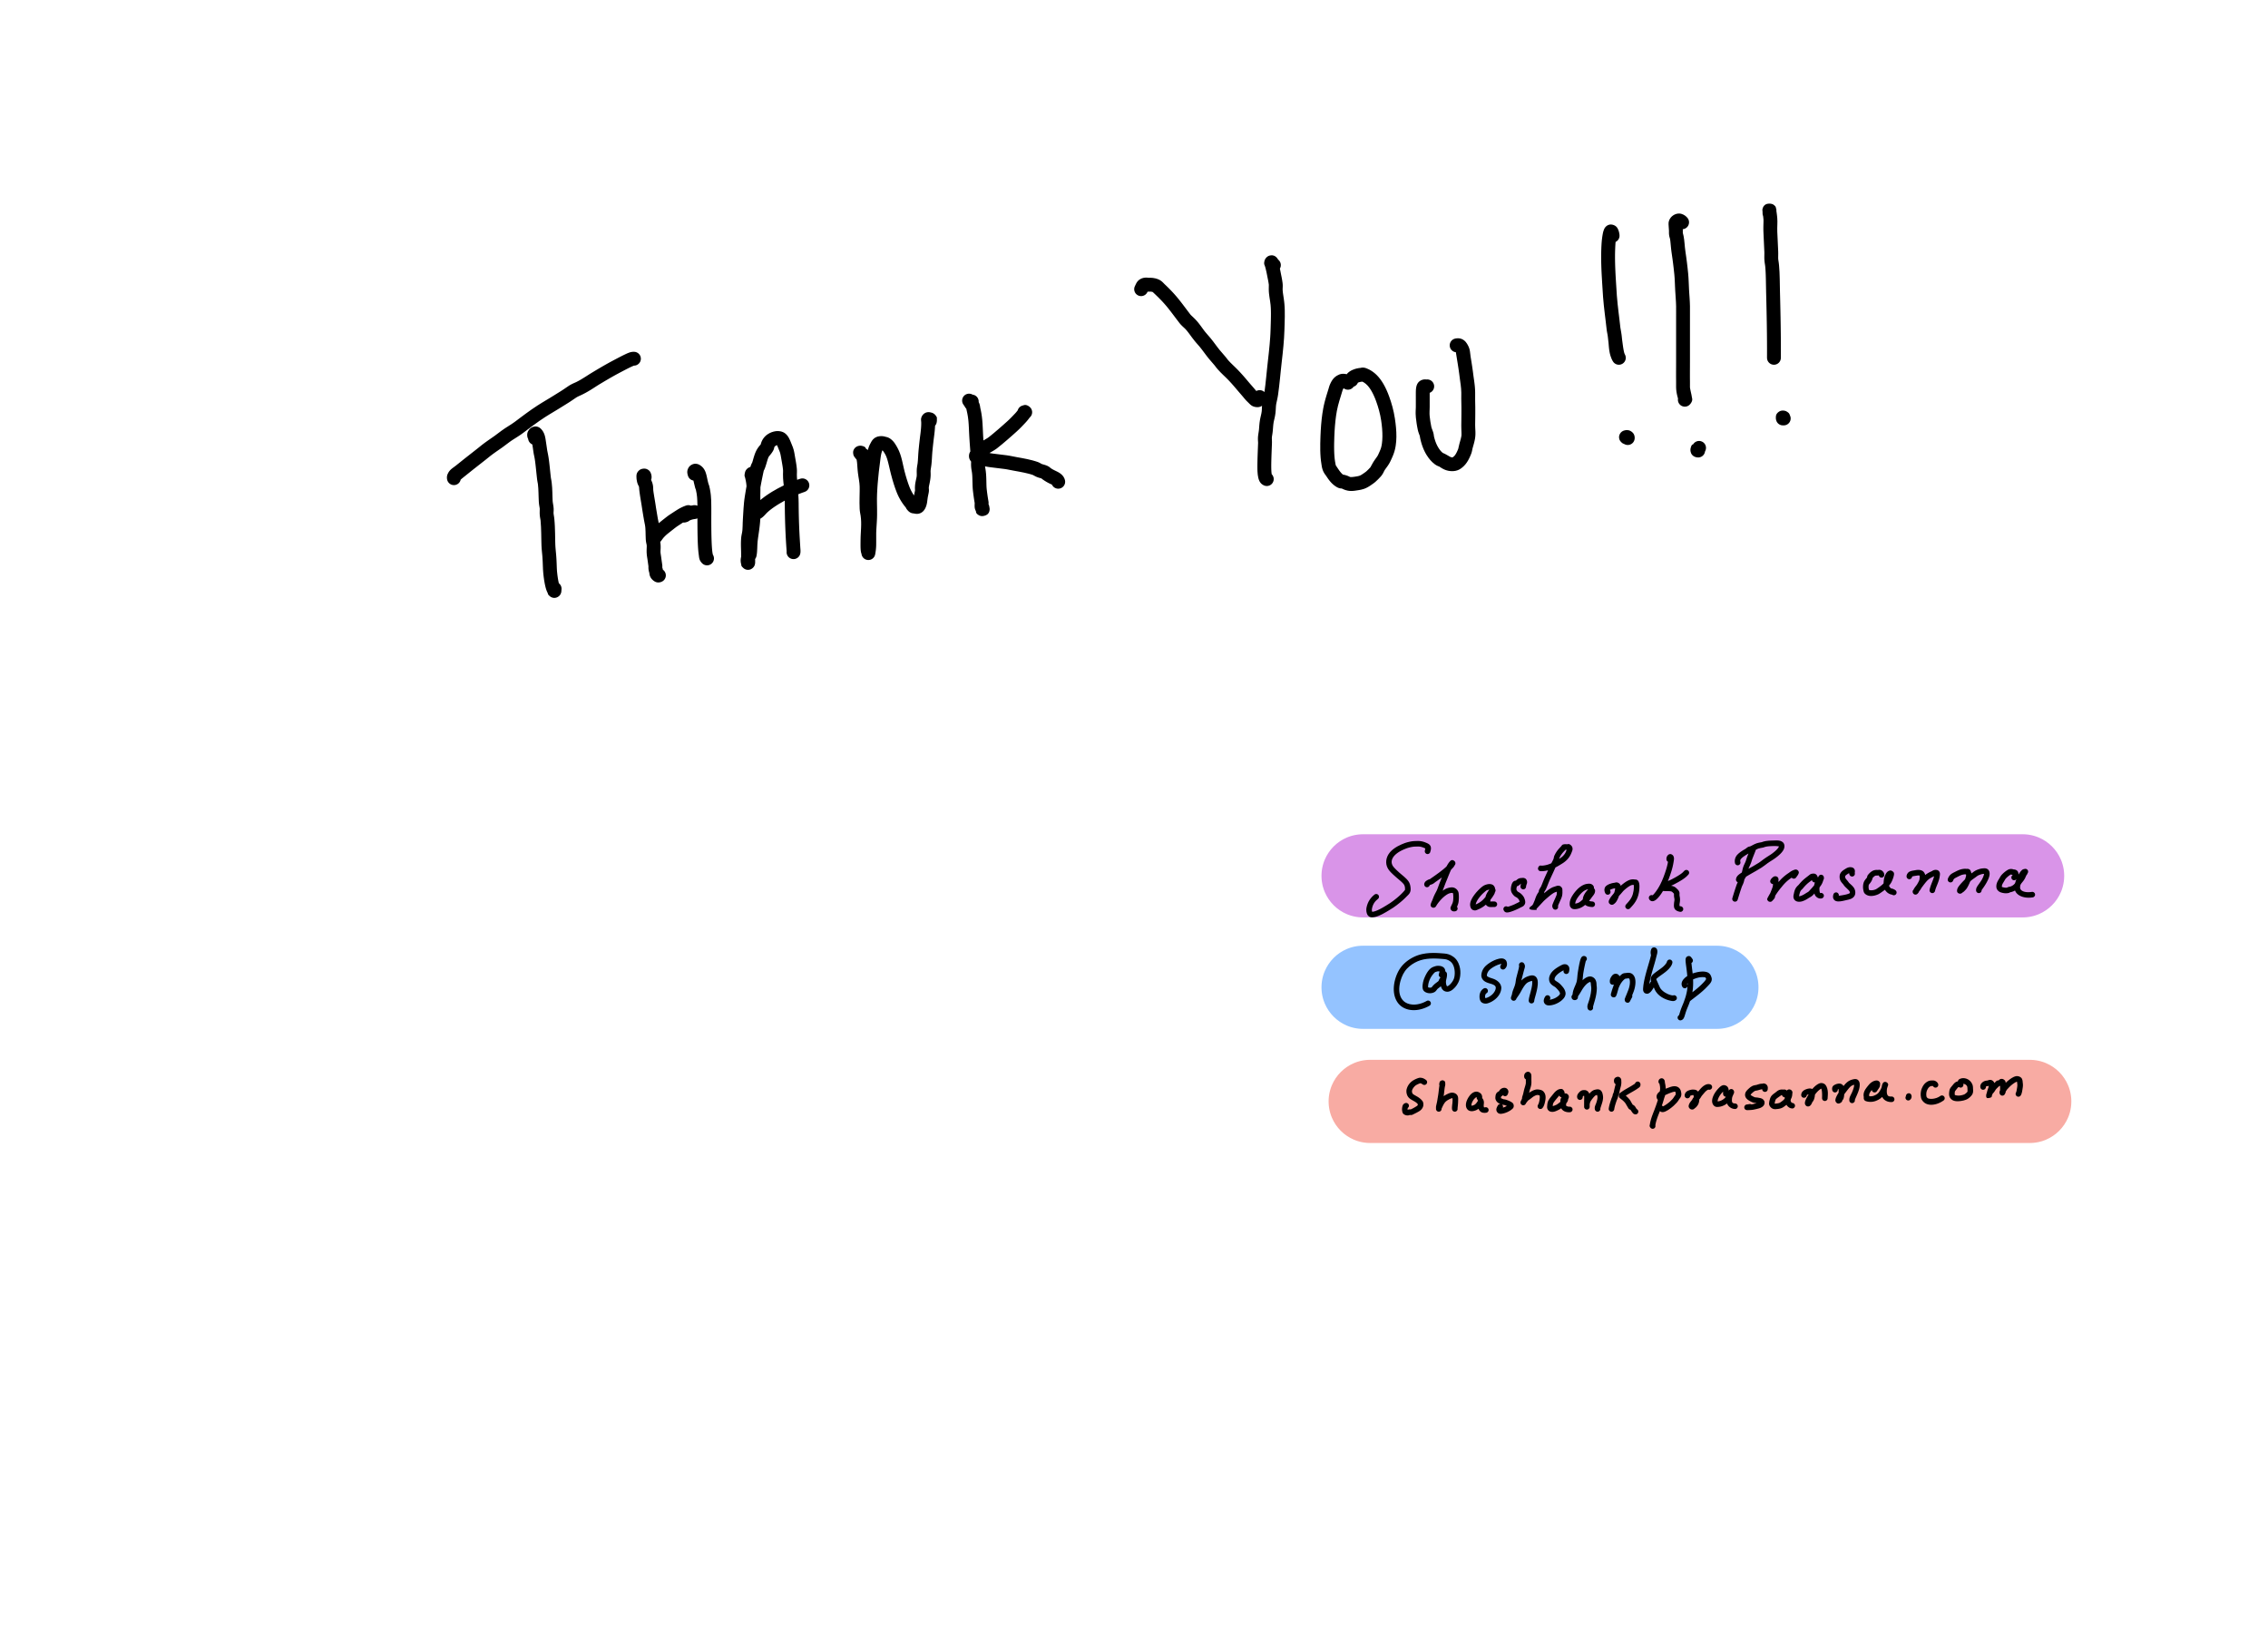 THANK YOU!!!
Shashank Prasanna
@ shshnkp
shashankprasanna.com